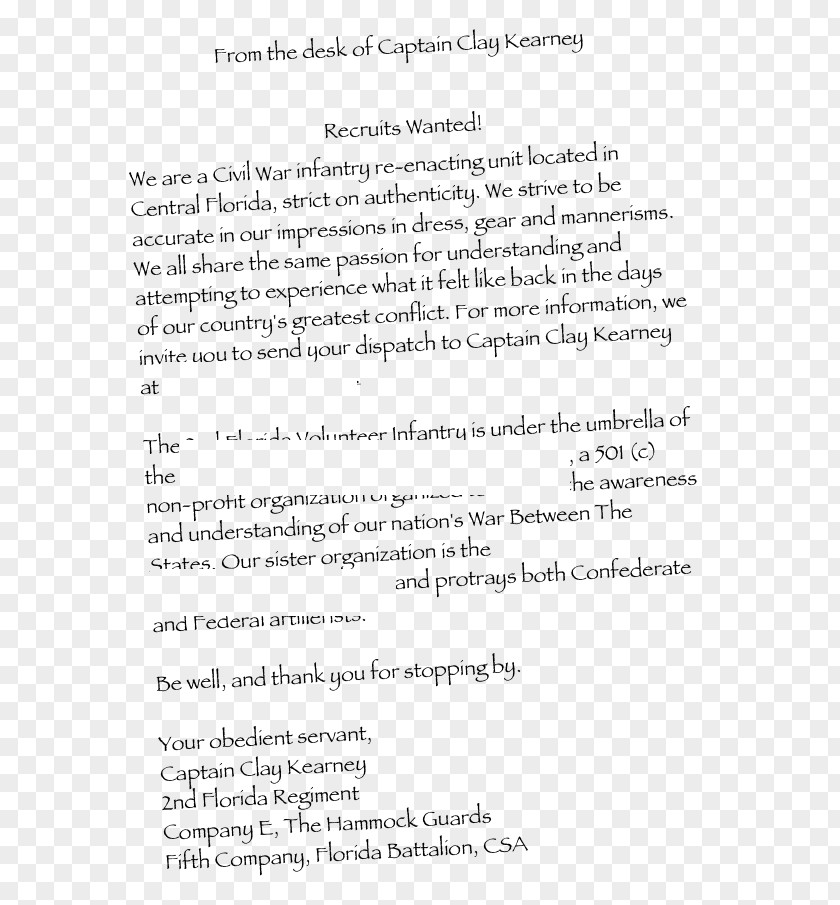 From the desk of Captain Clay Kearney
Recruits Wanted!
We are a Civil War infantry re-enacting unit located in
Central Florida, strict on authenticity. We strive to be
accurate in our impressions in dress, gear and mannerisms.
We all share the same passion for understanding and
attempting to experience what it felt like back in the days
of our country's greatest conflict. For more information, we
invite you to send your dispatch to Captain Clay Kearney
at
The Florida Volunteer Infantry is under the umbrella of
the , a 501 (c)
non-profit organization organized he awareness
and understanding of our nation's War Between The
States. Our sister organization is the
and protrays both Confederate
and Federal artillerists.
Be well, and thank you for stopping by.
Your obedient servant,
Captain Clay Kearney
2nd Florida Regiment
Company E, The Hammock Guards
Fifth Company, Florida Battalion, CSA